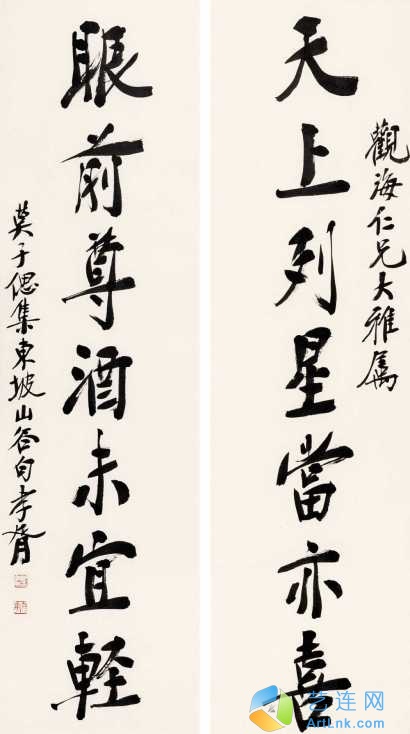 觀海仁兄大雅屬
天上列星當亦喜
眼前尊酒未宜輕
莫子偲集東坡山谷句孝胥
艺连网
ArtLnk.com